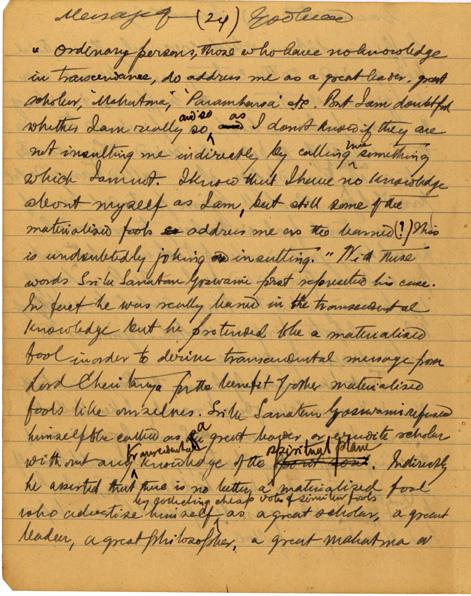 Message of (24) Godhead
" Ordinary persons, those who have no knowledge
in transcendence, do address me as a great leader, great
scholar, "Mahatma," "Paramhansa" etc. But I am doubtful
whether I am really so, and so as I don't know if they are
not insulting me indirectly by calling me something
which I am not. I know that I have no knowledge
about myself as I am, but still some of the
materialised fools address me as the learned (?) This
is undoubtedly joking insulting." With these
words Srila Sanatan Goswami first represented his case.
In fact he was really learned in the transcendental
knowledge but he pretended to be a materialised
fool in order to derive transcendental message from
Lord Chaitanya for the benefit of other materialised
fools like ourselves. Srila Sanatan Goswami refused
himself to be called as a great leader or erudite scholar
without any transcendental knowledge of the spiritual plane. Indirectly
he asserted that there is no better a materialised fool
who advertise himself by collecting cheap votes of similar fools as a great scholar, a great
leader, a great philosopher, a great mahatma or